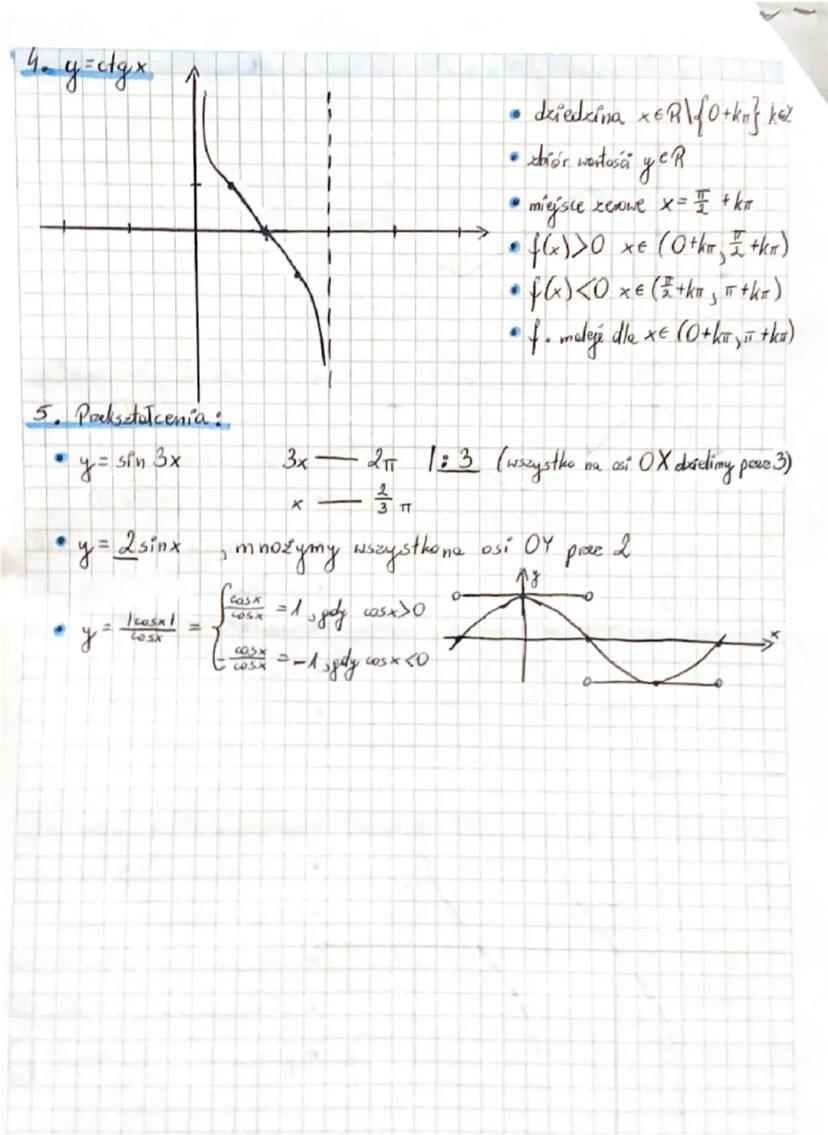 4. y=ctgx
• dziedzina x∈R\{0+kπ} k∈Z
• zbiór wartości y∈R
• miejsce zerowe x=π/2+kπ
• f(x)>0 x∈(0+kπ, π/2+kπ)
• f(x)<0 x∈(π/2+kπ, π+kπ)
• f. maleje dla x∈(0+kπ, π+kπ)
5. Przekształcenia:
• y=sin3x 3x — 2π |:3 (wszystko na osi OX dzielimy przez 3)
x — 2/3 π
• y=2sinx, mnożymy wszystko na osi OY przez 2
• y=|cosx|/cosx = { cosx/cosx =1, gdy cosx>0
-cosx/cosx =-1, gdy cosx<0
y
x